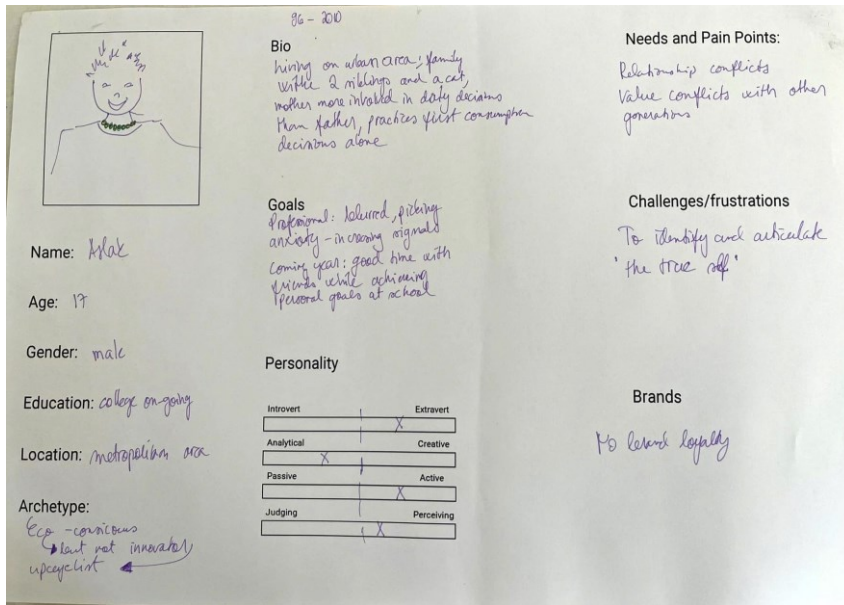 96 - 2010
Name: Aslak
Age: 17
Gender: male
Education: college on-going
Location: metropolitan area
Archetype:
Eco-conscious
but not innovator
upcyclist
Bio
living on urban area; family
with 2 siblings and a cat,
mother more involved in daily decisions
than father, practices first consumption
decisions alone
Goals
Professional: blurred,
anxiety - increasing signals
coming year: good time with
friends while achieving
personal goals at school
Personality
Introvert Extravert
Analytical Creative
Passive Active
Judging Perceiving
Needs and Pain Points:
Relationship conflicts
Value conflicts with other
generations
Challenges/frustrations
To identify and articulate
"the true self"
Brands
No brand loyalty